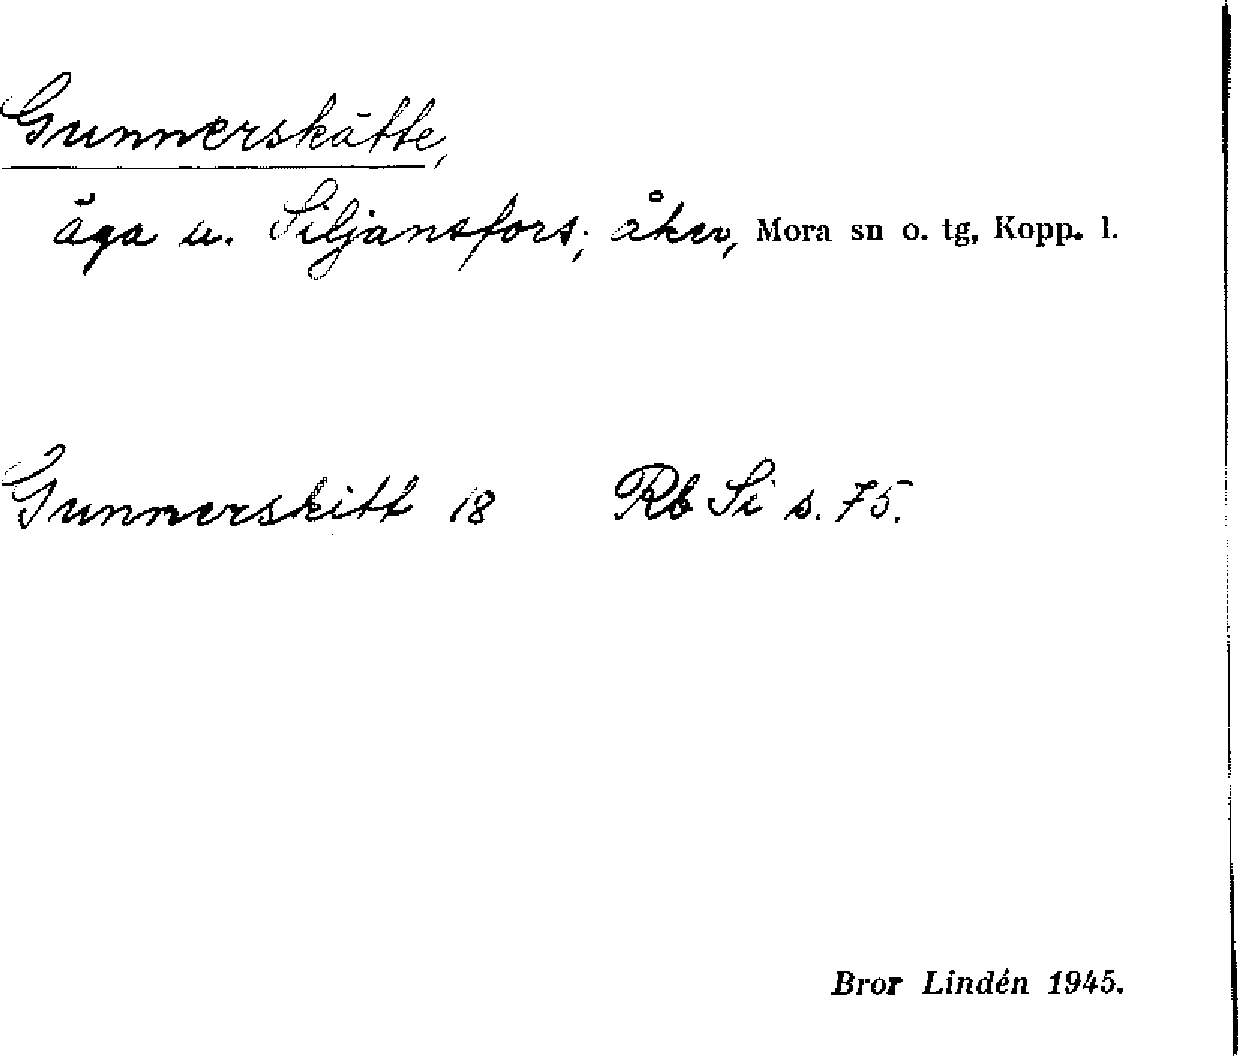 Gunnerskätte,
äga u. Siljansfors; åker, Mora sn o. tg, Kopp. l.
Gunnerskitt 18 Rb Si s. 75.
Bror Lindén 1945.